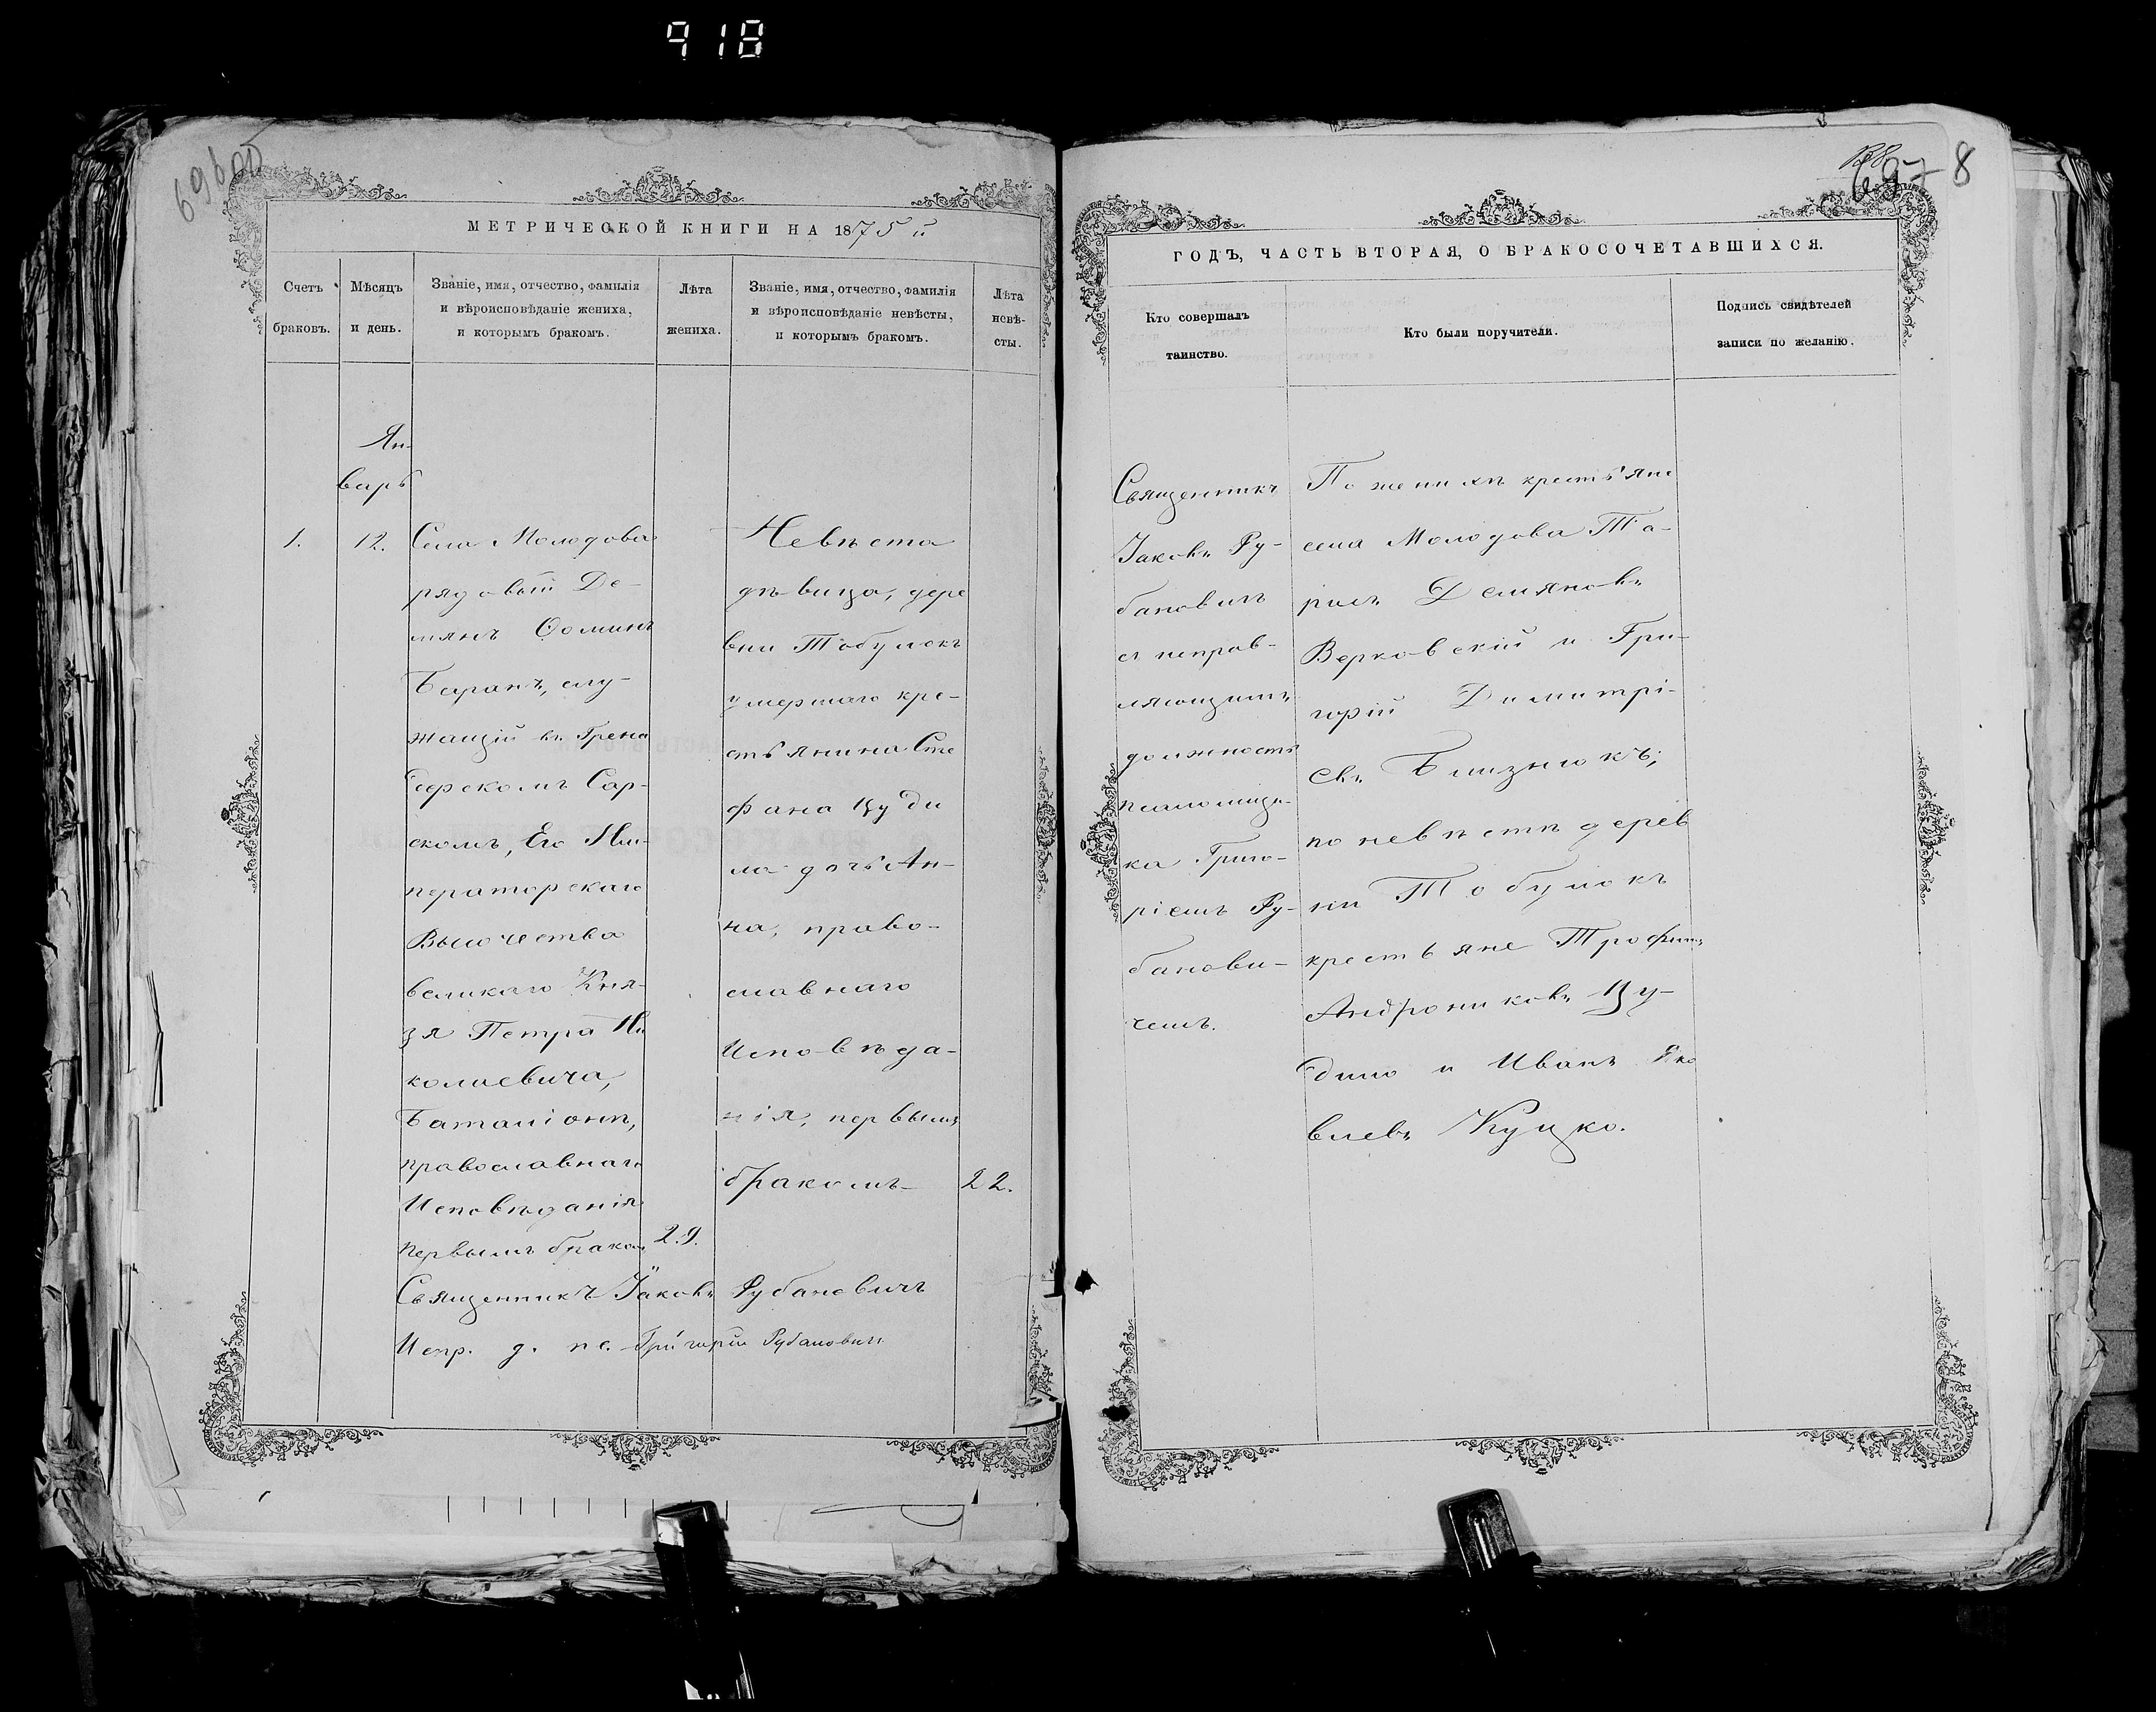 918
МЕТРИЧЕСКОЙ КНИГИ НА 1875 й
Счетъ браковъ.
Мѣсяцъ и день.
Званіе, имя, отчество, фамилія
и вѣроисповѣданіе жениха,
и которымъ бракомъ.
Лѣта жениха.
Званіе, имя, отчество, фамилія
и вѣроисповѣданіе невѣсты,
и которымъ бракомъ.
Лѣта невѣ-
сты.
Ян-
варь
1.
12.
Села Молодова
рядовый Де-
мянъ Ѳоминъ
Баранъ, слу-
жащій въ Грена
дерскомъ Сар-
скомъ, Его Им-
ператорскаго
Высочества
великаго Кня-
зя Петра Ни
колаевича,
Баталіонѣ,
православнаго
Исповѣданія
первымъ бракомъ
29.
Невѣста
дѣвица, дере
вни Тобулокъ
умершаго кре-
стьянина Сте
фана Цуди
ла дочь Ан-
на, право-
славнаго
Исповѣда-
нія, первымъ
бракомъ
22.
Священникъ Іаковъ Рубановичъ
Испр. д. пс. Григорій Рубановичъ
697
8
ГОДЪ, ЧАСТЬ ВТОРАЯ, О БРАКОСОЧЕТАВШИХСЯ.
Кто совершалъ
таинство.
Кто были поручители.
Подпись свидѣтелей
записи по желанію.
Священникъ
Іаковъ Ру-
бановичъ
съ исправ-
ляющимъ
должность
псаломщи-
ка Григо-
ріемъ Ру-
банови-
чемъ.
По женихѣ крестьяне
села Молодова Та-
расъ Демяновъ
Верковскій и Гри-
горій Димитрі-
евъ Близнюкъ;
по невѣстѣ дерев
ни Тобулокъ
крестьяне Трофимъ
Андрониковъ Цу-
дило и Иванъ Яко
влевъ Куцко.